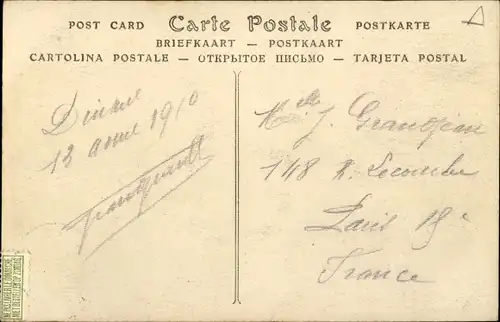 POST CARD Carte Postale POSTKARTE
BRIEFKAART — POSTKAART
CARTOLINA POSTALE — ОТКРЫТОЕ ПИСЬМО — TARJETA POSTAL
Dinant
13 1910
Melle J. Grandjean
148 R. Lecombe
Paris 19e
France